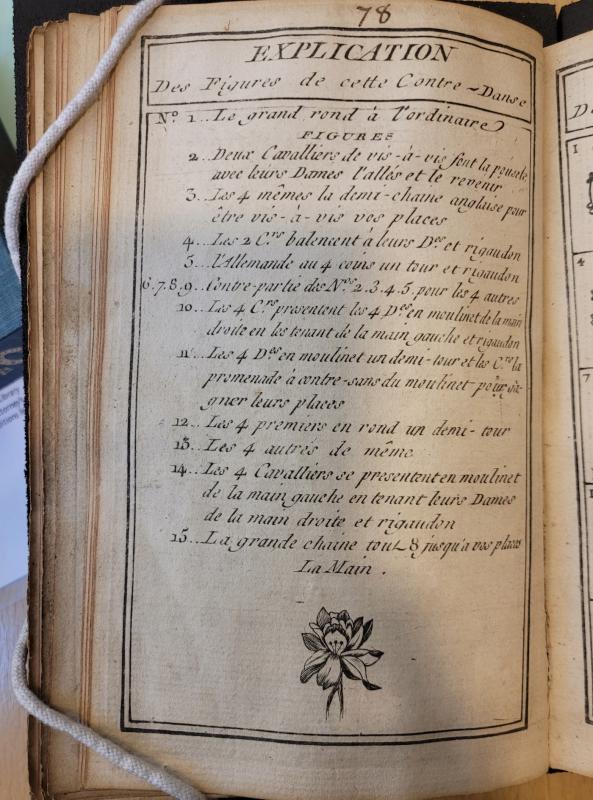 78
EXPLICATION
Des Figures de cette Contre-Danse
N.º 1... Le grand rond à l'ordinaire
FIGURES
2... Deux Cavalliers de vis-à-vis font la poussette
avec leurs Dames l'allés et le revenir
3... Les 4 mêmes la demi-chaine anglaise pour
être vis-à-vis vos places
4... Les 2 C.rs balencent à leurs D.es et rigaudon
5... l'Allemande au 4 coins un tour et rigaudon
6.7.8.9... Contre-partie des N.os 2.3.4.5. pour les 4 autres
10... Les 4 C.rs presentent les 4 D.es en moulinet de la main
droite en les tenant de la main gauche et rigaudon
11... Les 4 D.es en moulinet un demi-tour et les C.rs la
promenade à contre-sans du moulinet pour ga-
gner leurs places
12... Les 4 premiers en rond un demi-tour
13... Les 4 autres de même
14... Les 4 Cavalliers se presentent en moulinet
de la main gauche en tenant leurs Dames
de la main droite et rigaudon
15... La grande chaine tout 8 jusqu'a vos places
La Main.
D
1
4
7
Library